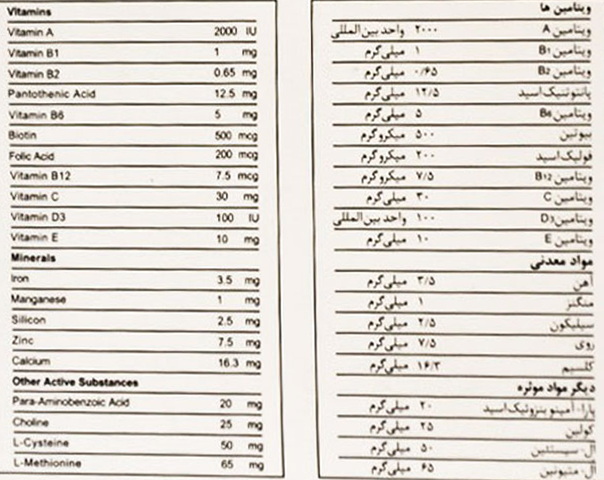 Vitamins
Vitamin A 2000 IU
Vitamin B1 1 mg
Vitamin B2 0.65 mg
Pantothenic Acid 12.5 mg
Vitamin B6 5 mg
Biotin 500 mcg
Folic Acid 200 mcg
Vitamin B12 7.5 mcg
Vitamin C 30 mg
Vitamin D3 100 IU
Vitamin E 10 mg
Minerals
Iron 3.5 mg
Manganese 1 mg
Silicon 2.5 mg
Zinc 7.5 mg
Calcium 16.3 mg
Other Active Substances
Para-Aminobenzoic Acid 20 mg
Choline 25 mg
L-Cysteine 50 mg
L-Methionine 65 mg
ویتامین ها
ویتامین A ۲۰۰۰ واحد بین‌المللی
ویتامین B1 ۱ میلی‌گرم
ویتامین B2 ۰/۶۵ میلی‌گرم
پانتوتنیک اسید ۱۲/۵ میلی‌گرم
ویتامین B6 ۵ میلی‌گرم
بیوتین ۵۰۰ میکروگرم
فولیک اسید ۲۰۰ میکروگرم
ویتامین B12 ۷/۵ میکروگرم
ویتامین C ۳۰ میلی‌گرم
ویتامین D3 ۱۰۰ واحد بین‌المللی
ویتامین E ۱۰ میلی‌گرم
مواد معدنی
آهن ۳/۵ میلی‌گرم
منگنز ۱ میلی‌گرم
سیلیکون ۲/۵ میلی‌گرم
روی ۷/۵ میلی‌گرم
کلسیم ۱۶/۳ میلی‌گرم
دیگر مواد موثره
پارا- آمینو بنزوئیک اسید ۲۰ میلی‌گرم
کولین ۲۵ میلی‌گرم
ال- سیستئین ۵۰ میلی‌گرم
ال- متیونین ۶۵ میلی‌گرم